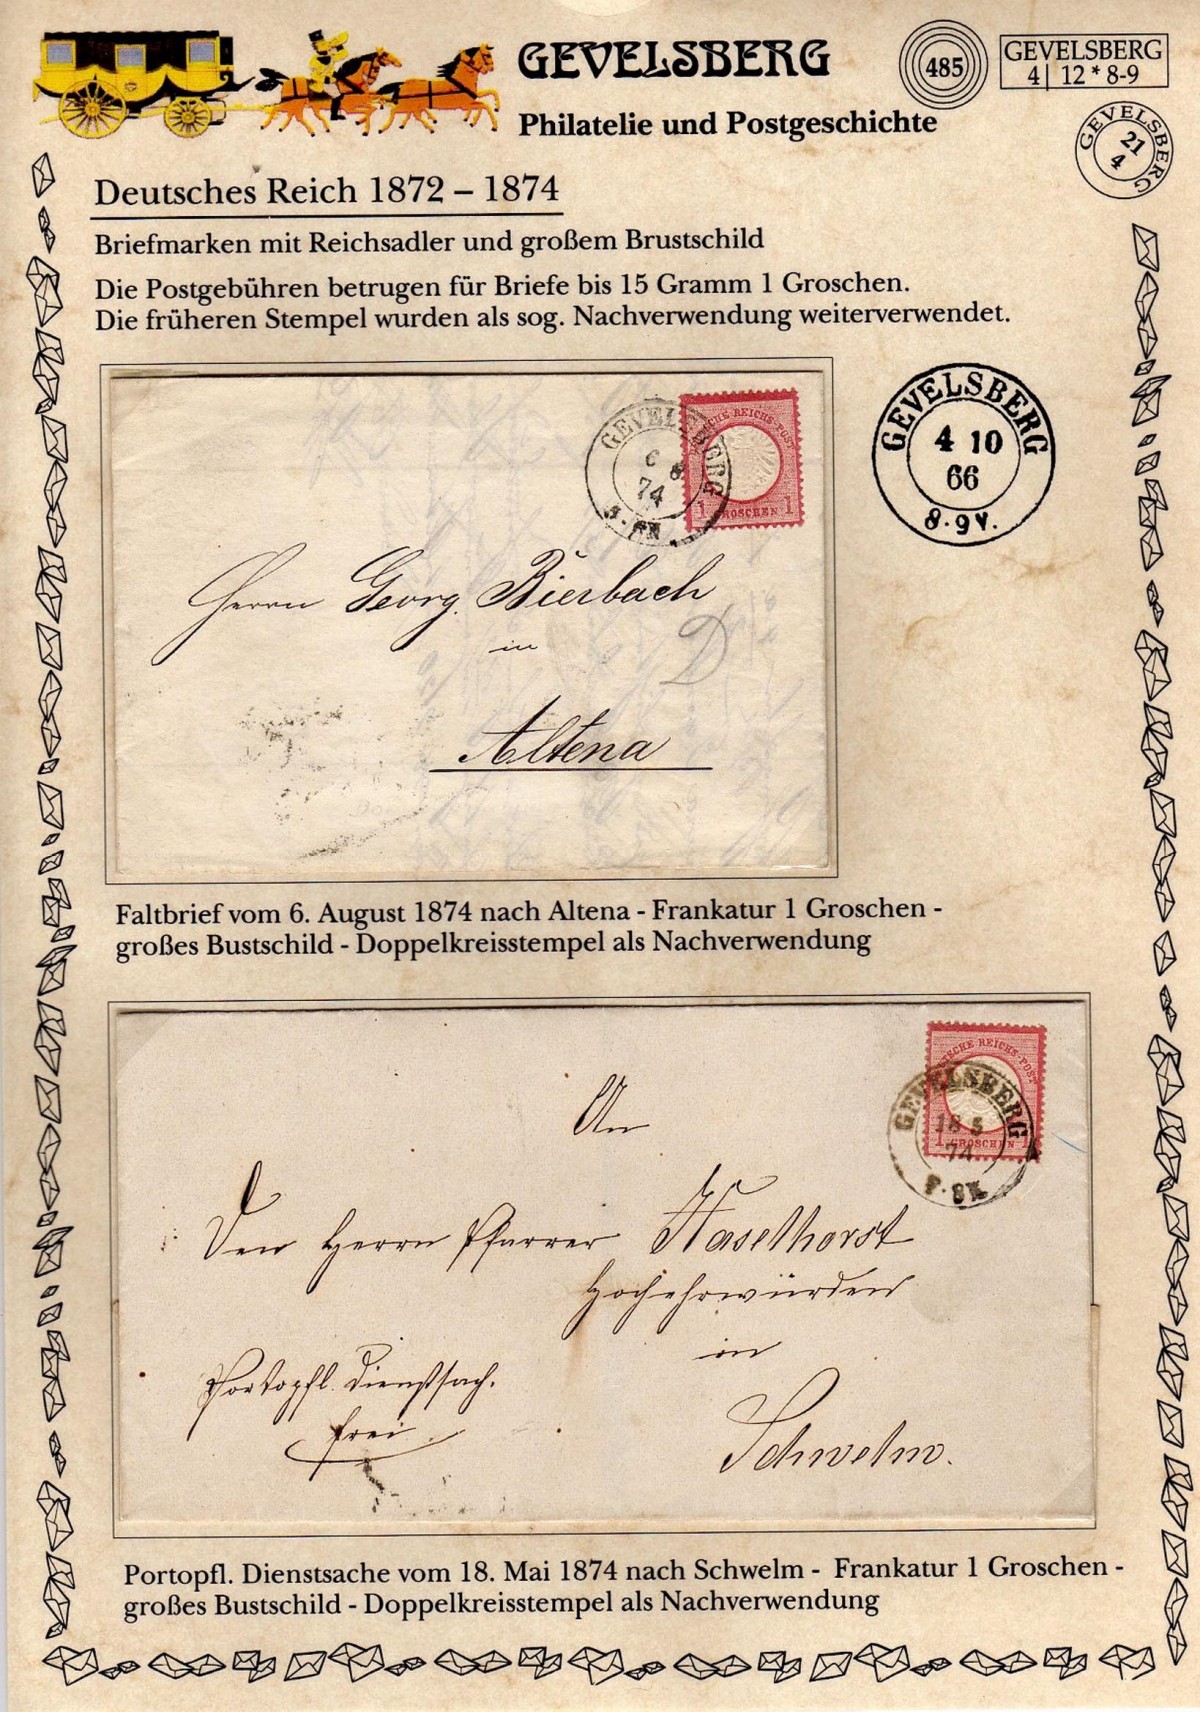 GEVELSBERG
Philatelie und Postgeschichte
485
GEVELSBERG
4| 12 * 8-9
GEVELSBERG
21
4
Deutsches Reich 1872 – 1874
Briefmarken mit Reichsadler und großem Brustschild
Die Postgebühren betrugen für Briefe bis 15 Gramm 1 Groschen.
Die früheren Stempel wurden als sog. Nachverwendung weiterverwendet.
GEVELSBERG
6 8
74
REICHS-POST
1 GROSCHEN 1
GEVELSBERG
4 10
66
8-9V.
Herrn Georg Bierbach
in
D
Altena
Faltbrief vom 6. August 1874 nach Altena - Frankatur 1 Groschen -
großes Bustschild - Doppelkreisstempel als Nachverwendung
REICHS-POST
GEVELSBERG
18 5
74
1 GROSCHEN 1
An
Den Herrn Pfarrer Haselhorst
Hochehrwürden
in
Portopfl. Dienstsach.
frei.
Schwelm.
Portopfl. Dienstsache vom 18. Mai 1874 nach Schwelm - Frankatur 1 Groschen -
großes Bustschild - Doppelkreisstempel als Nachverwendung